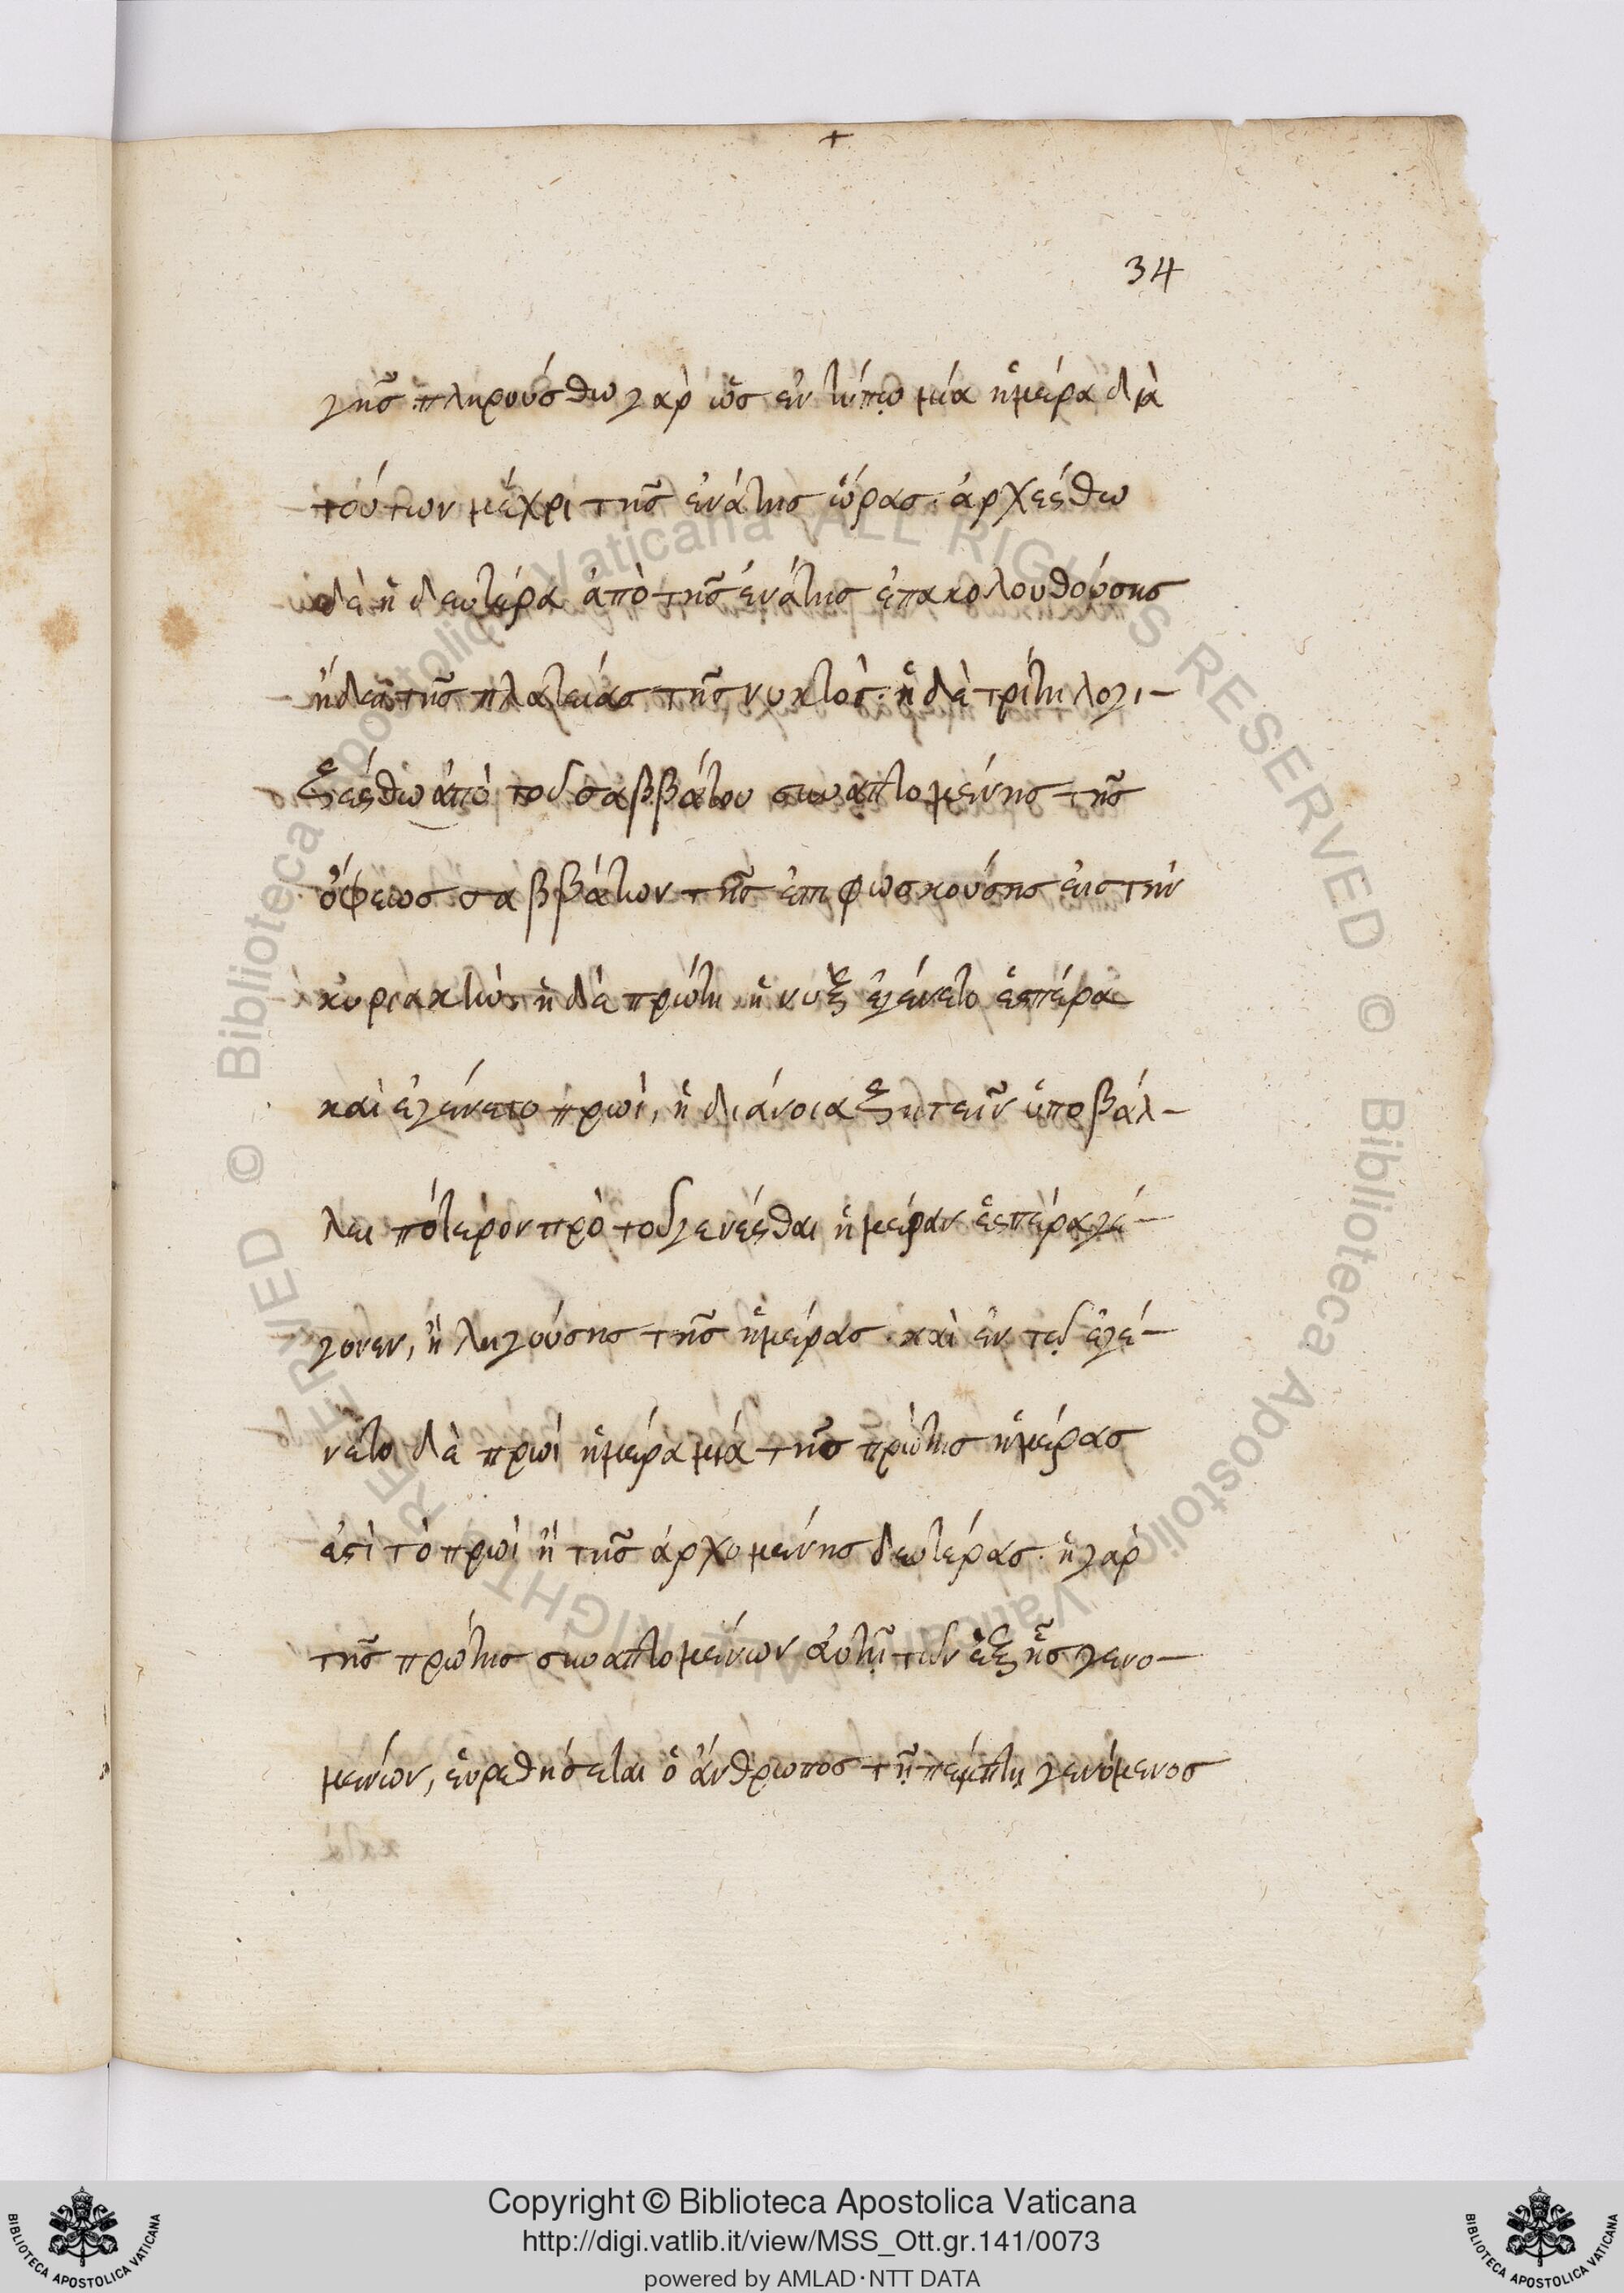 +
34
γῆς πληρούσθω γὰρ ὡς ἐν τύπῳ μία ἡμέρα διὰ
τούτων μέχρι τῆς ἐνάτης ὥρας. ἀρχέσθω
δὲ ἡ δευτέρα ἀπὸ τῆς ἐνάτης ἐπακολουθούσης
τῆς πλατείας τῆς νυκτός. ἡ δὲ τρίτη λογι-
ζέσθω ἀπὸ τοῦ σαββάτου συναπτομένης τῆς
ὄψεως σαββάτων τῆς ἐπιφωσκούσης εἰς τὴν
κυριακήν. ἡ δὲ πρώτη ἡ νὺξ ἐγένετο ἑσπέρα
καὶ ἐγένετο πρωί, ἡ διάνοια ζητεῖν ὑποβάλ-
λει πότερον πρὸ τοῦ γενέσθαι ἡμέραν ἑσπέρα γέ-
γονεν, ἢ ληγούσης τῆς ἡμέρας. καὶ ἐν τῷ ἐγέ-
νετο δὲ πρωί ἡμέρα μιά τῆς πρώτης ἡμέρας
ἐστὶ τὸ πρωὶ ἢ τῆς ἀρχομένης δευτέρας. ἢ γὰρ
τῆς πρώτης συναπτομένων αὐτῇ τῶν ἑξῆς γενο-
μένων, εὑρεθήσεται ὁ ἄνθρωπος τῇ πέμπτῃ γενόμενος
Copyright © Biblioteca Apostolica Vaticana
http://digi.vatlib.it/view/MSS_Ott.gr.141/0073
powered by AMLAD·NTT DATA